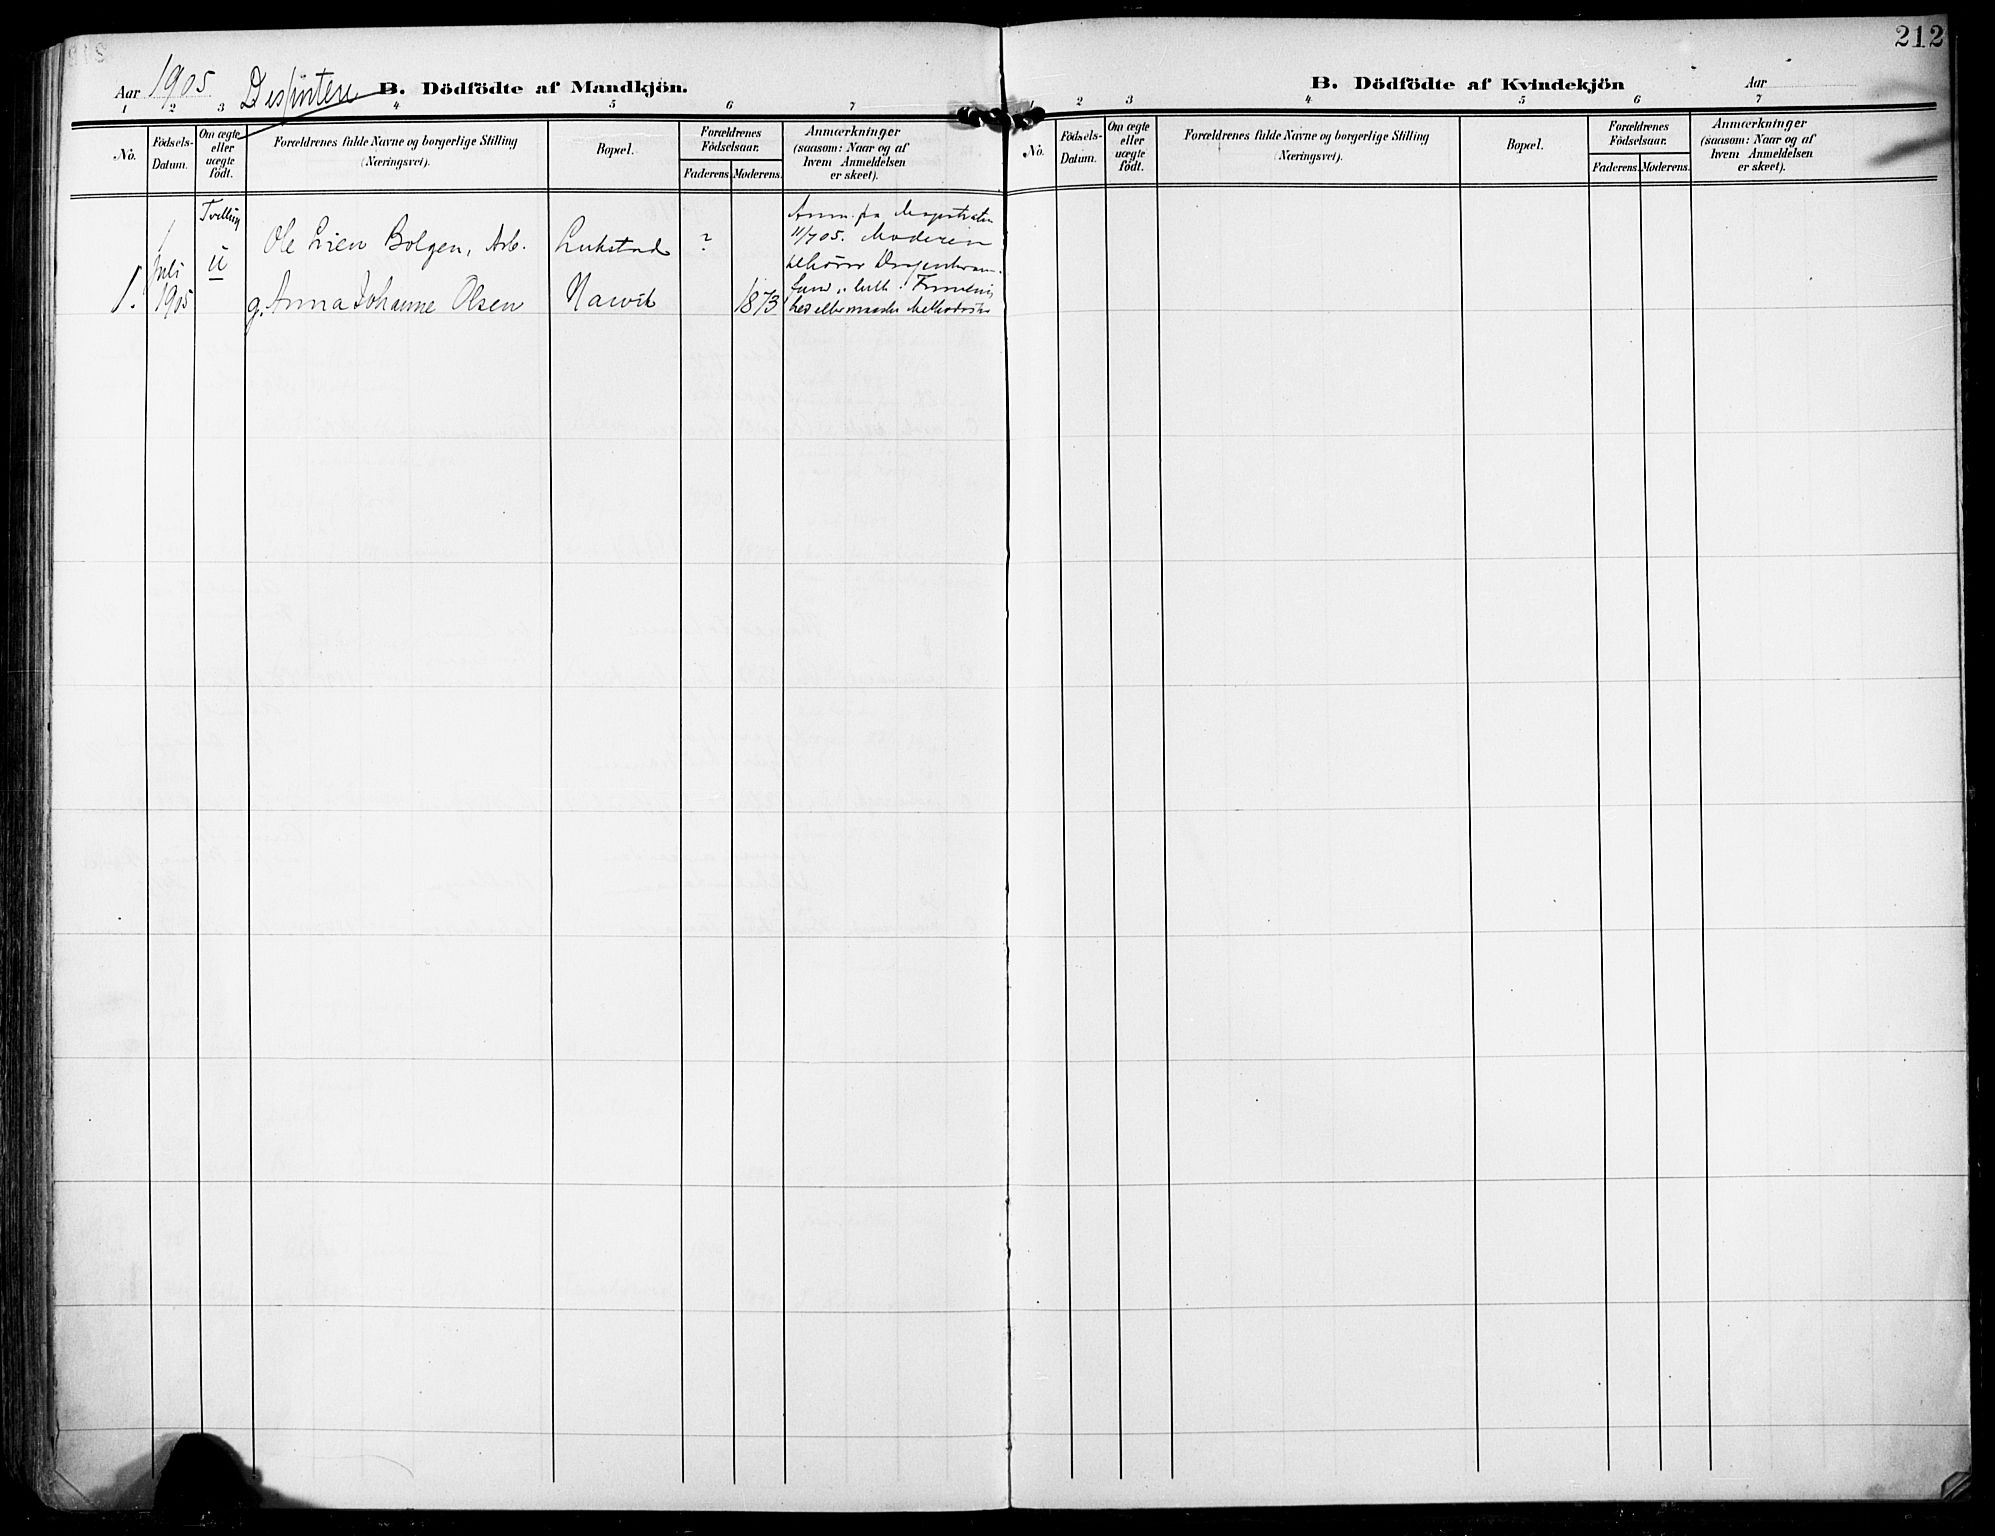 212
Aar 1905. B. Dödfödte af Mandkjön.
1 2 3 4 5 6 7
No.
Födsels-
Datum.
Om ægte
eller
uægte
födt.
Forældrenes fulde Navne og borgerlige Stilling
(Næringsvei).
Bopæl.
Forældrenes
Födselsaar.
Faderens. Moderens.
Anmærkninger
(saasom: Naar og af
hvem Anmeldelsen
er skeet).
1.
1
Juli
1905
Tvilling
u
Ole Lien Bolgen, Arb.
g. Anna Johanne Olsen
Narvik
?
1873
Anm. fra
11/7 05. Moderen
B. Dödfödte af Kvindekjön
Aar
1 2 3 4 5 6 7
No.
Födsels-
Datum.
Om ægte
eller
uægte
födt.
Forældrenes fulde Navne og borgerlige Stilling
(Næringsvei).
Bopæl.
Forældrenes
Födselsaar.
Faderens. Moderens.
Anmærkninger
(saasom: Naar og af
hvem Anmeldelsen
er skeet).